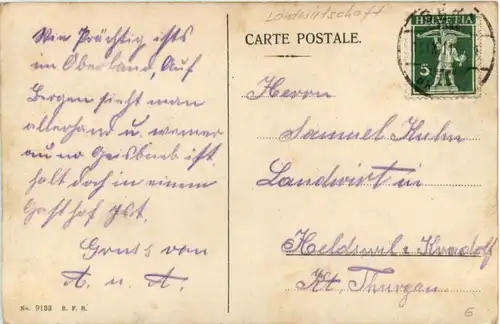 Landwirtschaft
HELVETIA
5
CARTE POSTALE.
Wie Prächtig ists
im Oberland, Auf
Bergen sieht man
allerhand u. wenner
au no Geisbueb ist
halt doch in einem
Gasthof ist.
Gruss von
A. u. A.
Herrn
Samuel Kuhn
Landwirt in
Heldswil: Kradolf
Kt. Thurgau
No. 9133 S. F. R.
6